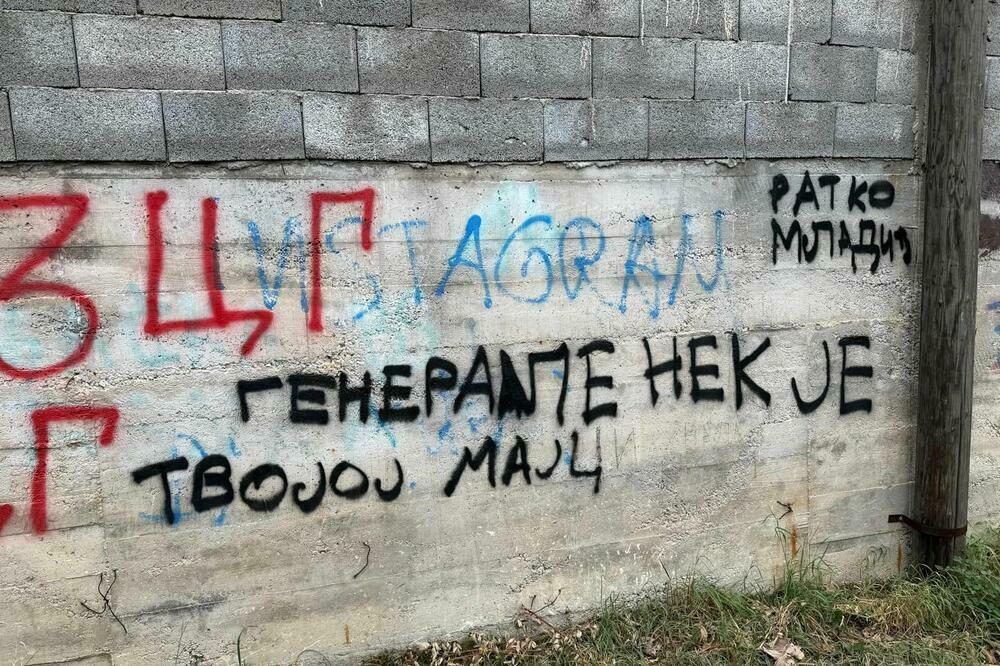 ЗЦГ
INSTAGRAN
РАТКО
МЛАДИЋ
ГЕНЕРАЛЕ НЕК ЈЕ
ТВОЈОЈ МАЈЦИ
Г